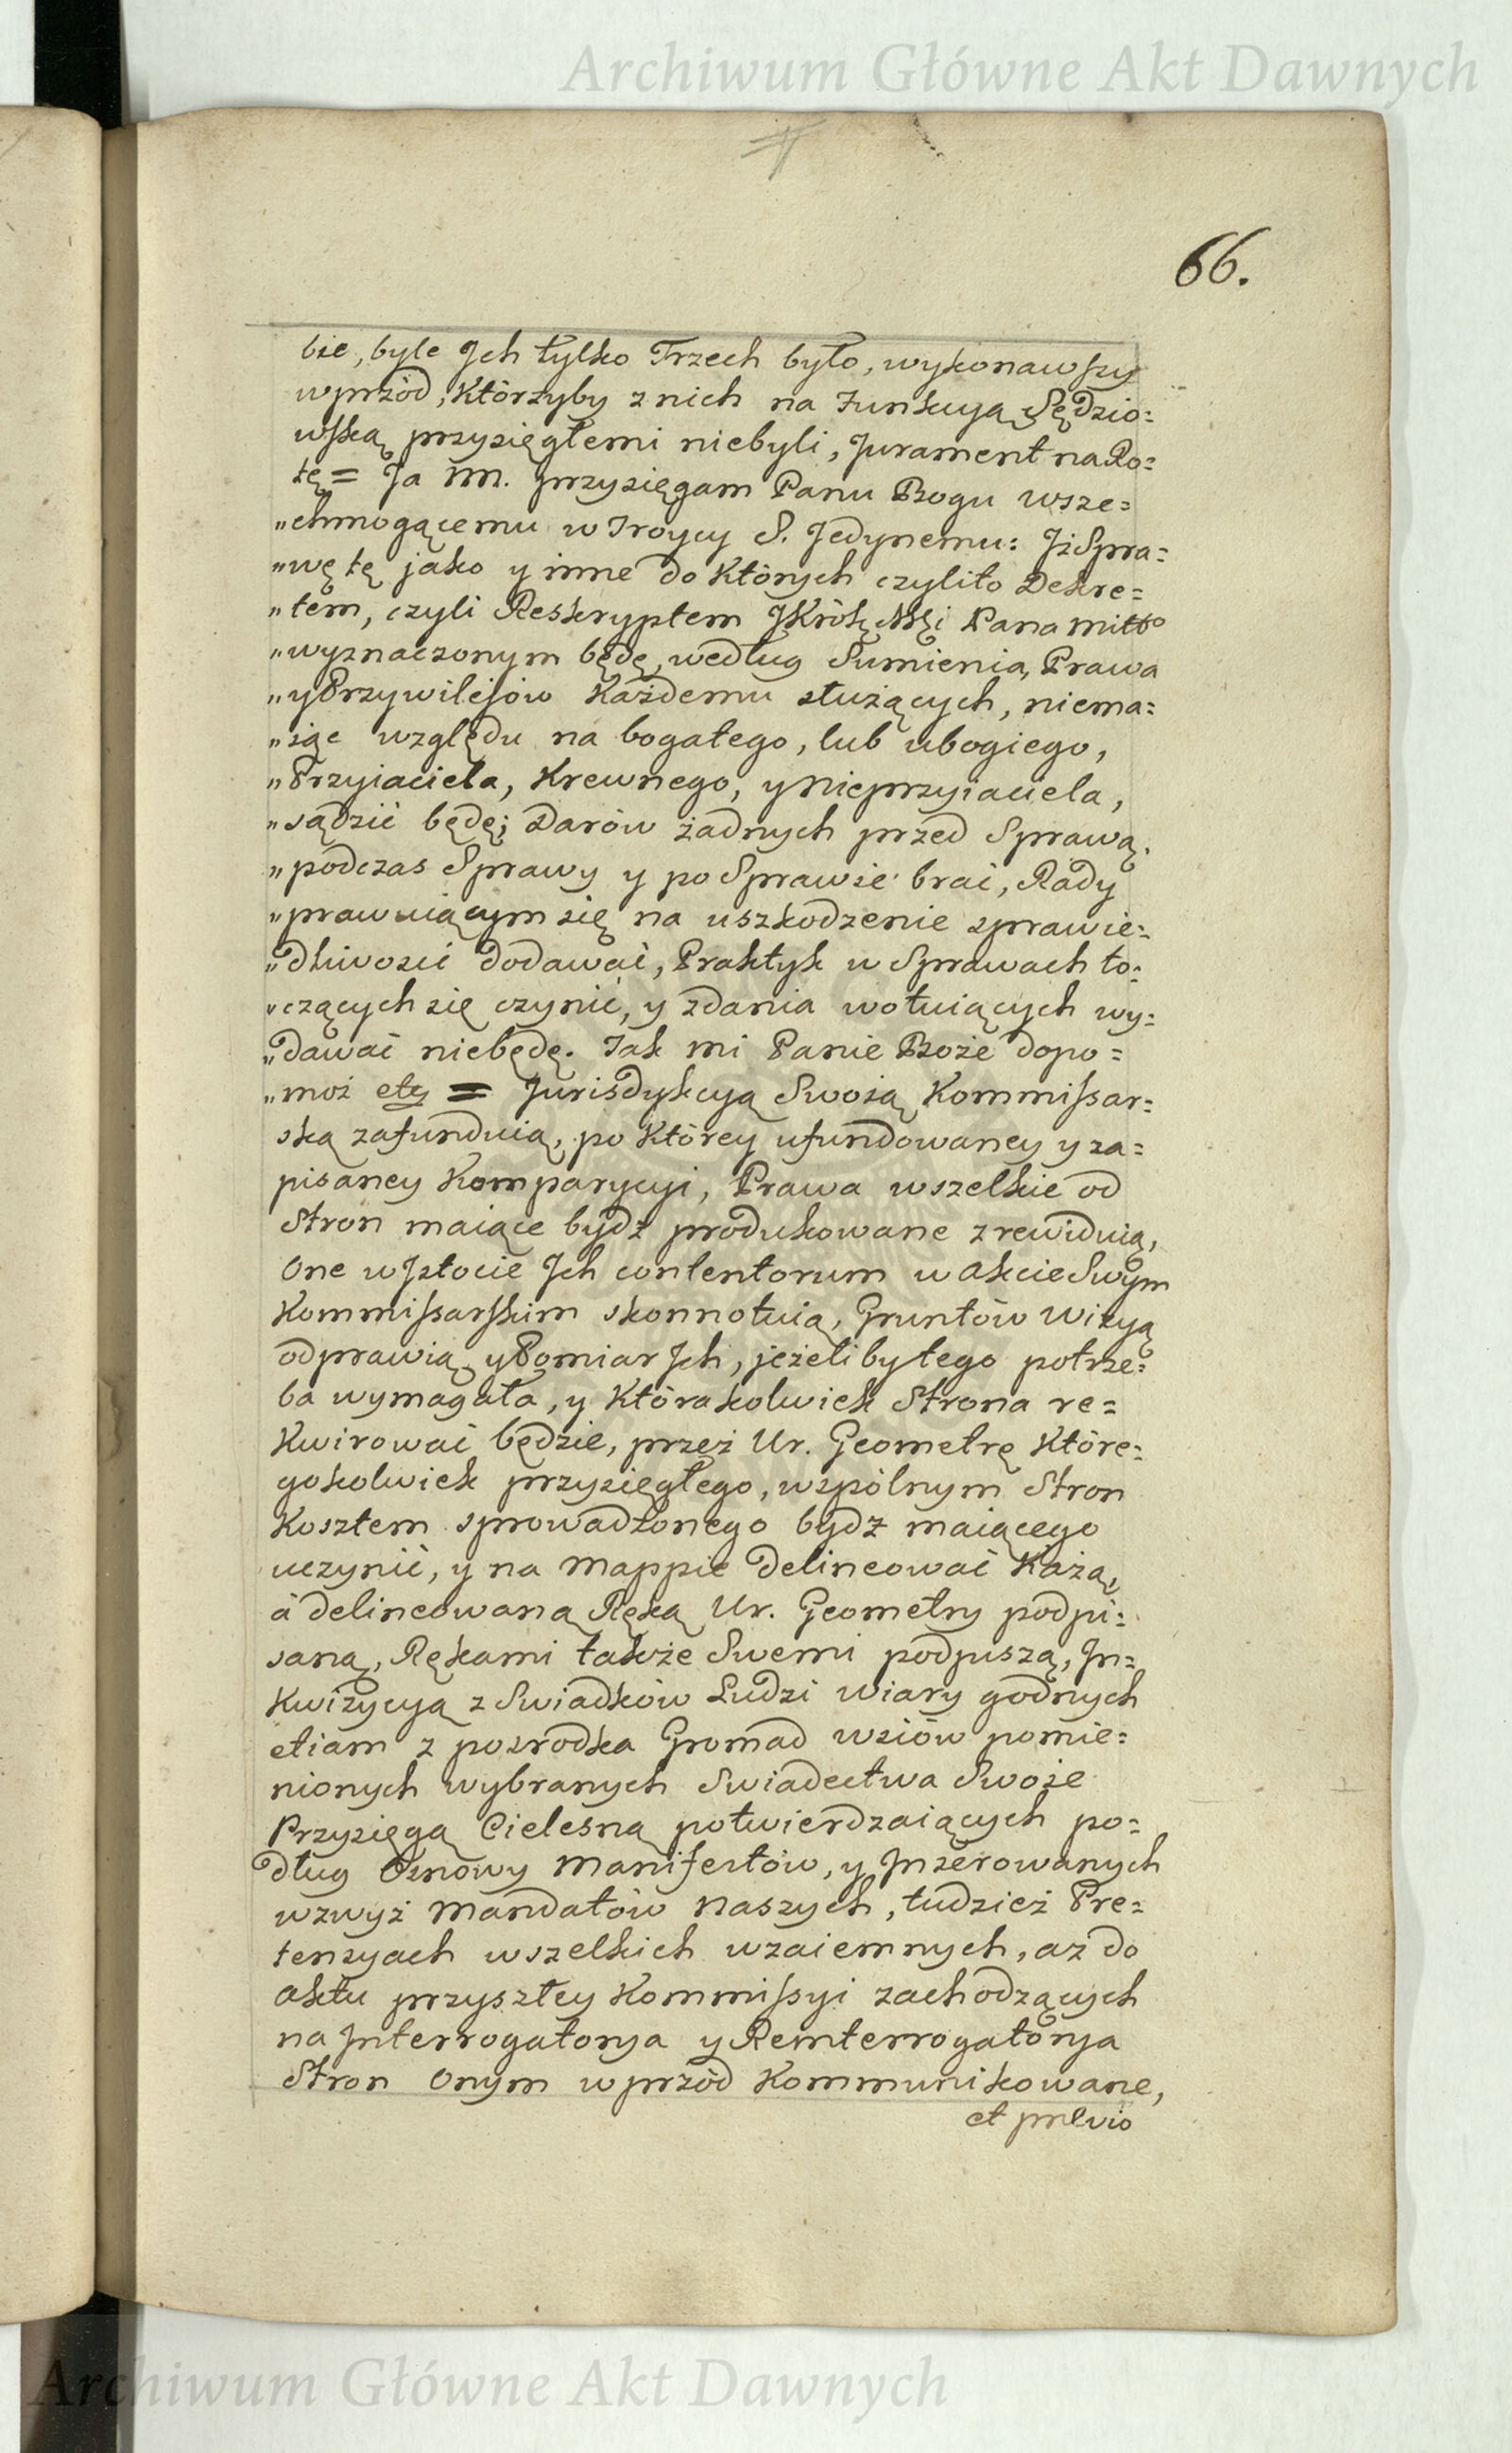 Archiwum Główne Akt Dawnych
66.
bie, byle Jch tylko Trzech było, wykonawszy
wprzód, Którzyby z nich na Funkcyą Sędzio=
wską przysięgłemi niebyli, Jurament na Ro=
tę = Ja NN. przysięgam Panu Bogu wsze=
„chmogącemu w Troycy S. Jedynemu: Jż Spra=
„wę tę jako y inne do Których czyli to Dekre=
„tem, czyli Reskryptem JKrólę Mści Pana Miłło
„wyznaczonym będę, według Sumienia, Prawa
„y Przywilejów Każdemu służących, niema=
„iąc względu na bogatego, lub ubogiego,
„Przyiaciela, Krewnego, y Nieprzyiaciela,
„sądzić będę; Darów żadnych przed Sprawą,
„podczas Sprawy y po Sprawie brać, Rady
„prawuiącym się na uszkodzenie sprawie=
„dliwości dodawać, Praktyk w Sprawach to=
„czących się czynić, y zdania wotuiących wy=
„dawać niebędę. Tak mi Panie Boże dopo=
„moż etc = Jurisdykcyą Swoią Kommissar=
ską zafunduią, po Którey ufundowaney y za=
pisaney Komparycyi, Prawa wszelkie od
Stron maiące bydź produkowane zrewiduią,
One w Jstocie Jch contentorum w akcie Swym
Kommissarskim skonnotuią, Gruntów Wizyą
odprawią y Pomiar Jch, jeżeliby tego potrze=
ba wymagała, y Którakolwiek Strona re=
Kwirować będzie, przez Ur. Geometrę Które=
gokolwiek przysięgłego, wspólnym Stron
Kosztem sprowadzonego bydź maiącego
uczynić, y na Mappie delineować Każą,
à delineowaną Ręką Ur. Geometry podpi=
saną, Rękami także Swemi podpiszą, Jn=
Kwizycyą z Swiadków Ludzi wiary godnych
etiam z pozrodka Gromad wsiów pomie=
nionych wybranych Swiadectwa Swoie
Przysięgą Cielesną potwierdzaiących po=
dług Osnowy Manifestów, y Jnserowanych
wzwyż Mandatów Naszych, tudzież Pre=
tensyach wszelkich wzaiemnych, aż do
aktu przyszłey Kommissyi zachodzących
na Jnterrogatorya y Reinterrogatorya
Stron Onym wprzód Kommunikowane,
et prævio
Archiwum Główne Akt Dawnych